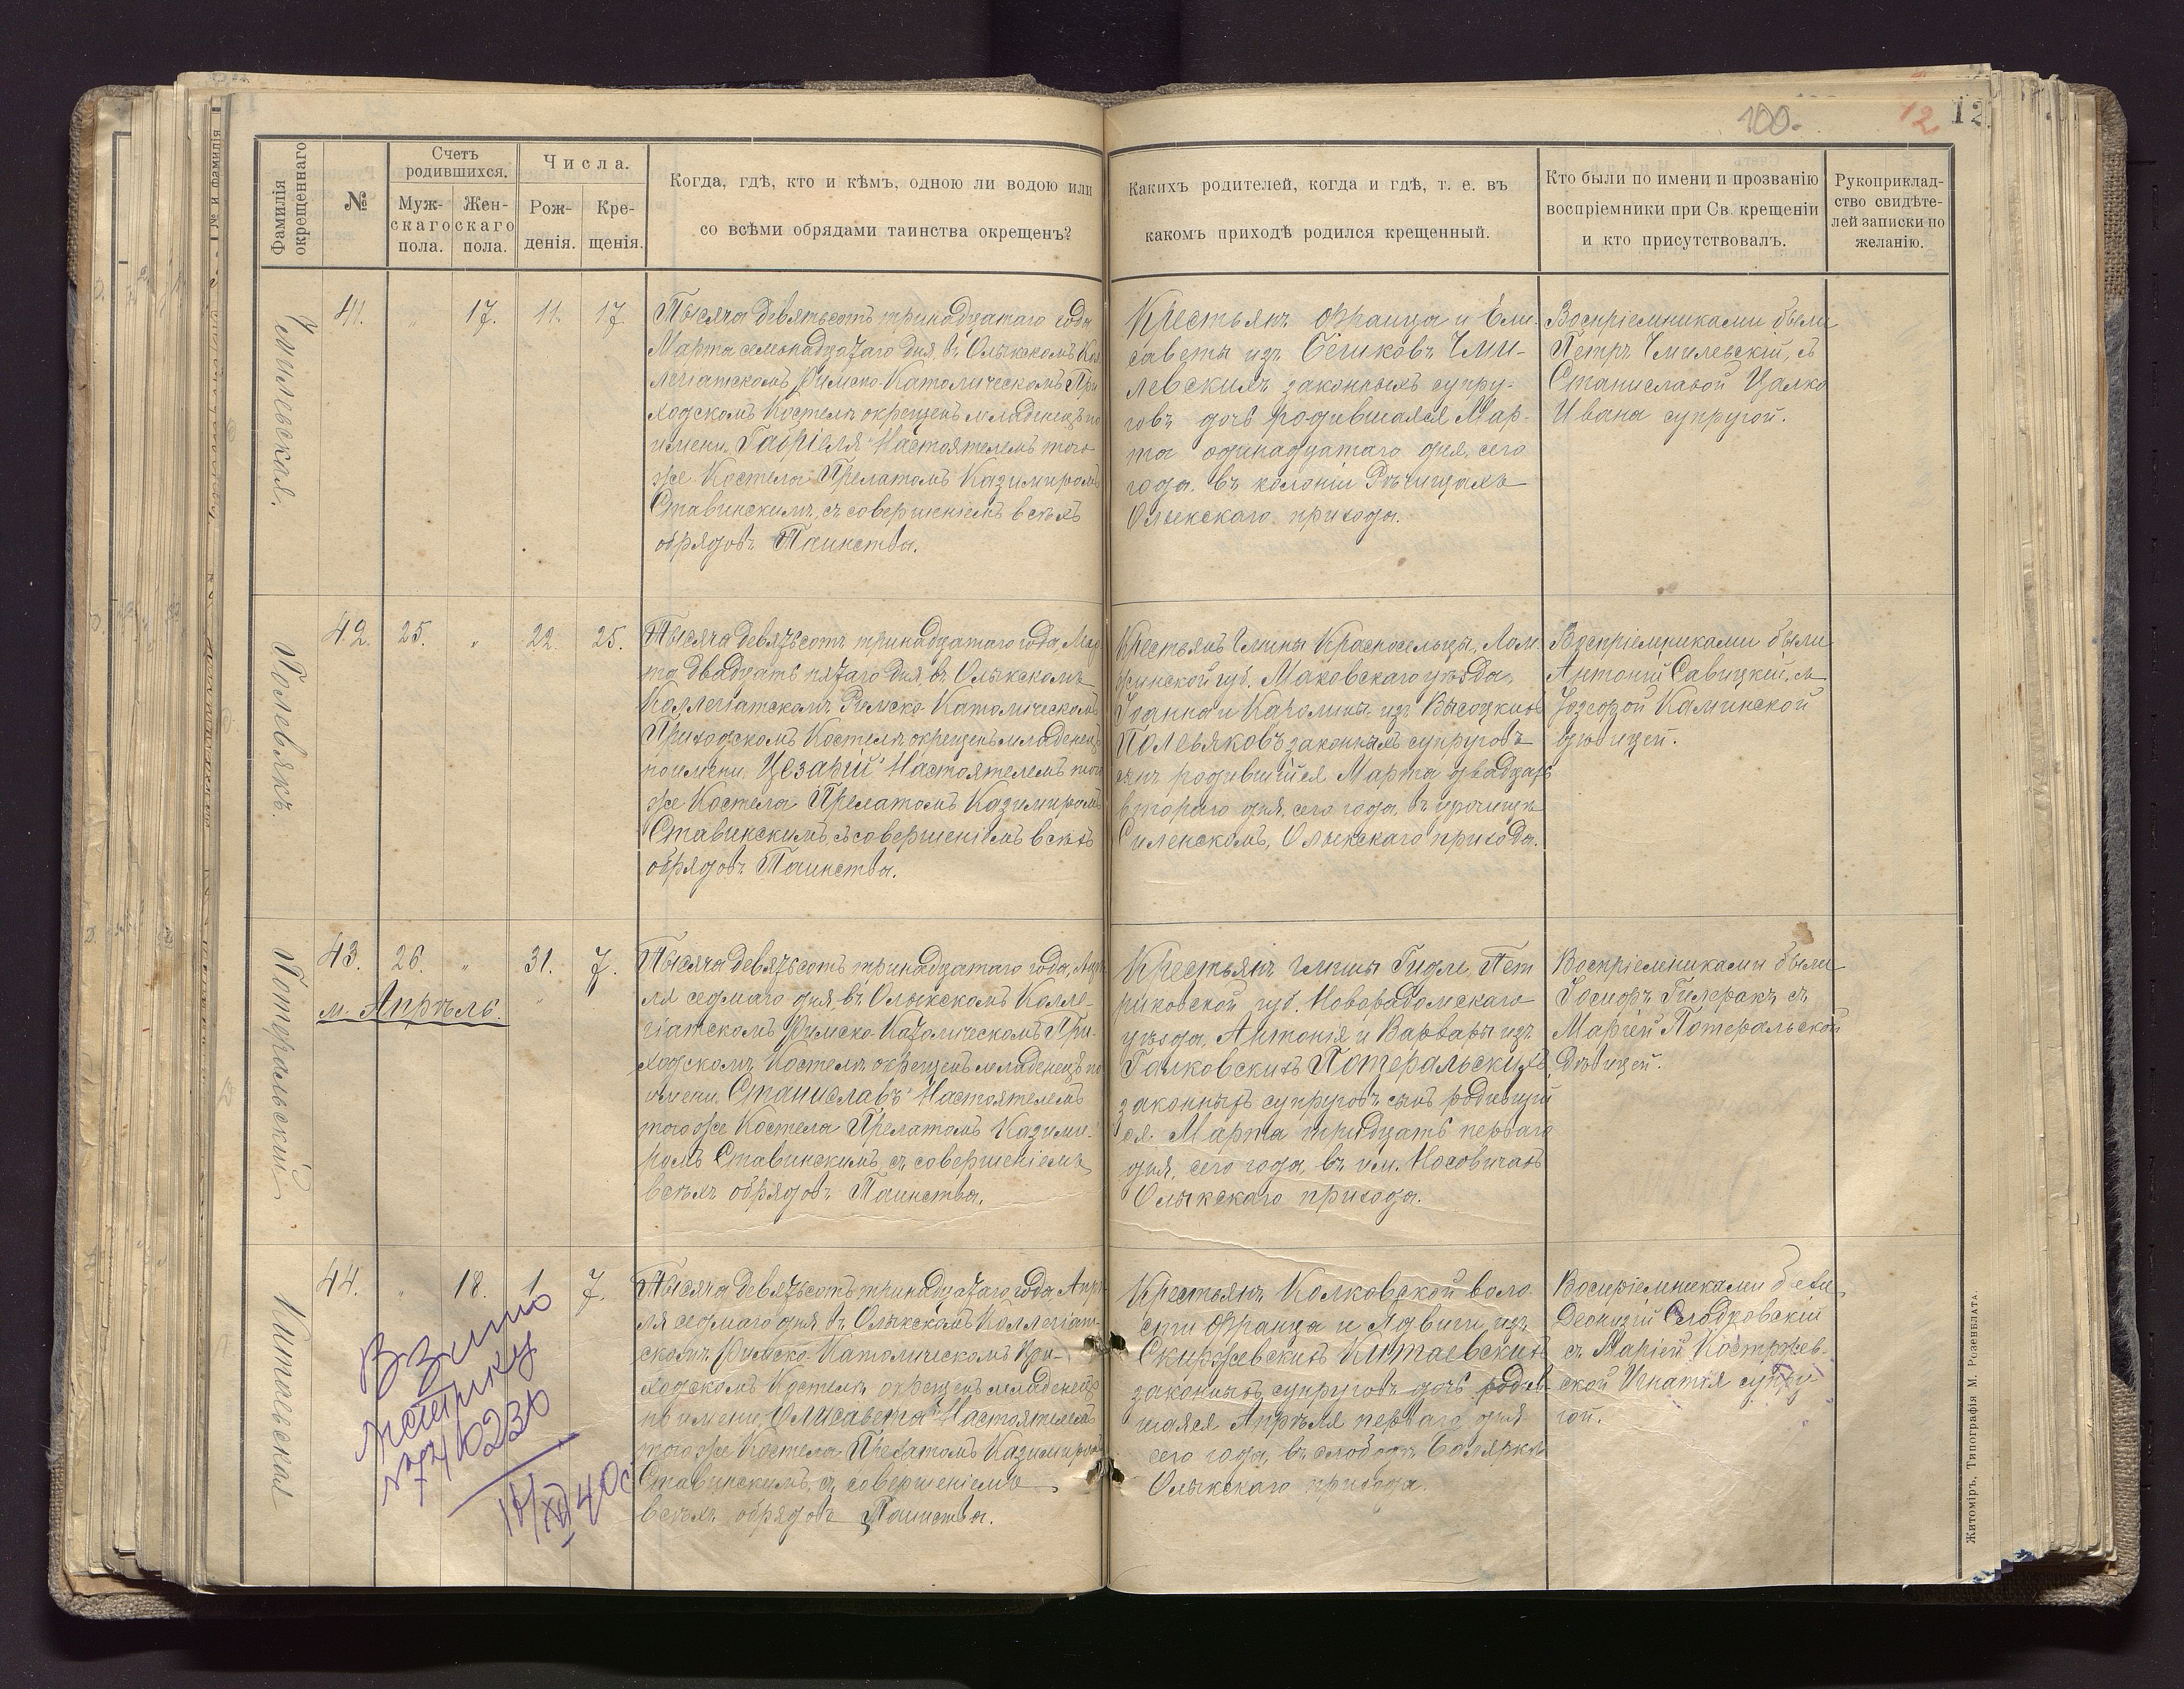 100.
12
12
Фамилія окрещеннаго
№
Счетъ родившихся.
Мужскаго пола.
Женскаго пола.
Числа.
Рожденія.
Крещенія.
Когда, гдѣ, кто и кѣмъ, одною ли водою или
со всѣми обрядами таинства окрещенъ?
Какихъ родителей, когда и гдѣ, т. е. въ
какомъ приходѣ родился крещенный.
Кто были по имени и прозванію
воспріемники при Св. крещеніи
и кто присутствовалъ.
Рукоприклад-
ство свидѣте-
лей записки по
желанію.
Чмилевская.
41. " 17. 11. 17.
Тысяча девятьсотъ тринадцатаго года
Марта семнадцатаго дня, въ Олыкскомъ Кол
легіатскомъ Римско-Католическомъ При
ходскомъ Костелѣ окрещенъ младенецъ по
имени „Габріеля" Настоятелемъ того
же Костела Прелатомъ Казимиромъ
Ставинскимъ, съ совершеніемъ всѣхъ
обрядовъ Таинства.
Крестьянъ Франца и Ели-
саветы изъ Чми-
левскихъ законныхъ супру-
говъ дочь родившаяся Мар-
та одинадцатаго дня, сего
года, въ колоніи Рѣчищахъ
Олыкскаго прихода.
Воспріемниками были
Петръ Чмилевскій, съ
Станиславой Цалко
Ивана супругой.
Полевякъ.
42. 25. " 22. 25.
Тысяча девятьсотъ тринадцатаго года, Мар
та двадцать пятаго дня, въ Олыкскомъ
Коллегіатскомъ Римско-Католическомъ
Приходскомъ Костелѣ окрещенъ младенецъ
по имени „Цезарій" Настоятелемъ того
же Костела Прелатомъ Казимиромъ
Ставинскимъ, съ совершеніемъ всѣхъ
обрядовъ Таинства.
Крестьянъ Гмины Красносельцы, Лом
жинской губ. Маковскаго уѣзда,
Іоанна и Каролины изъ Высоцкихъ
Полевяковъ законныхъ супруговъ
сынъ родившійся Марта двадцать
втораго дня, сего года, въ урочищѣ
Силенскомъ, Олыкскаго прихода.
Воспріемниками были
Антоній Савицкій, съ
Іозефой Каминской
дѣвицей.
Потеральскій
43. 26. " 31. 7.
м. Апрѣль. "
Тысяча девятьсотъ тринадцатаго года, Апрѣ
ля седмаго дня, въ Олыкскомъ Колле-
гіатскомъ Римско-Католическомъ При-
ходскомъ Костелѣ окрещенъ младенецъ по
имени „Станиславъ" Настоятелемъ
того же Костела Прелатомъ Казими-
ромъ Ставинскимъ, съ совершеніемъ
всѣхъ обрядовъ Таинства.
Крестьянъ гмины Гидле, Пет
риковской губ. Новорадомскаго
уѣзда, Антонія и Варвары изъ
Галковскихъ Потеральскихъ
законныхъ супруговъ сынъ родившій
ся Марта тридцать перваго
дня, сего года, въ им. Носовичахъ
Олыкскаго прихода.
Воспріемниками были
Іосифъ съ
Маріей Потеральской
дѣвицей.
Китаевская
44. " 18. 1. 7.
Тысяча девятьсотъ тринадцатаго года Апрѣ
ля седмаго дня въ Олыкскомъ Коллегіат-
скомъ Римско-Католическомъ При-
ходскомъ Костелѣ окрещенъ младенецъ
по имени „Елисавета" Настоятелемъ
того же Костела Прелатомъ Казимиромъ
Ставинскимъ, съ совершеніемъ
всѣхъ обрядовъ Таинства.
Крестьянъ Колковской воло-
сти Франца и Ядвиги изъ
Скиржевскихъ Китаевскихъ
законныхъ супруговъ дочь родив-
шаяся Апрѣля перваго дня
сего года, въ слободѣ Боляркѣ
Олыкскаго прихода.
Воспріемниками были
Деонизій
съ Маріей Костржев-
ской Игнатія супру-
гой.
Взято
метрику
Житоміръ. Типографія М. Розенблата.